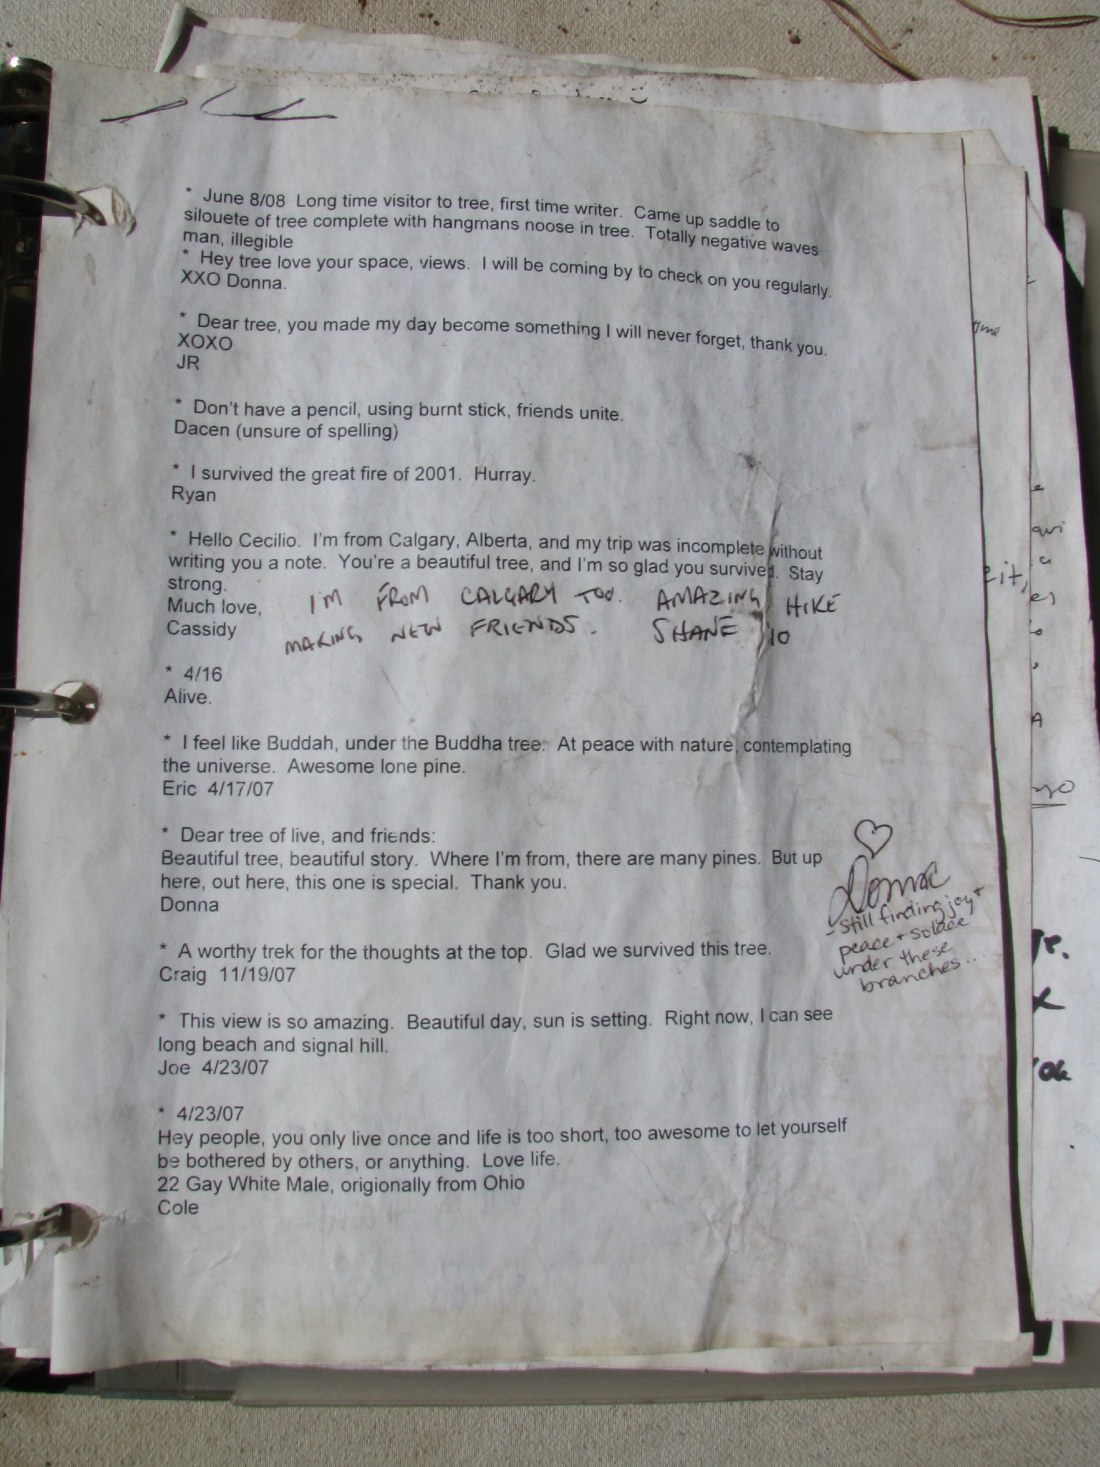 * June 8/08 Long time visitor to tree, first time writer. Came up saddle to
silouete of tree complete with hangmans noose in tree. Totally negative waves
man, illegible
* Hey tree love your space, views. I will be coming by to check on you regularly.
XXO Donna.
* Dear tree, you made my day become something I will never forget, thank you.
XOXO
JR
* Don't have a pencil, using burnt stick, friends unite.
Dacen (unsure of spelling)
* I survived the great fire of 2001. Hurray.
Ryan
* Hello Cecilio. I'm from Calgary, Alberta, and my trip was incomplete without
writing you a note. You're a beautiful tree, and I'm so glad you survived. Stay
strong.
Much love,
Cassidy
I'M FROM CALGARY TOO. AMAZING HIKE
MAKING NEW FRIENDS. SHANE '10
* 4/16
Alive.
* I feel like Buddah, under the Buddha tree. At peace with nature, contemplating
the universe. Awesome lone pine.
Eric 4/17/07
* Dear tree of live, and friends:
Beautiful tree, beautiful story. Where I'm from, there are many pines. But up
here, out here, this one is special. Thank you.
Donna
Donna
- Still finding joy +
peace + solace
under these
branches...
* A worthy trek for the thoughts at the top. Glad we survived this tree.
Craig 11/19/07
* This view is so amazing. Beautiful day, sun is setting. Right now, I can see
long beach and signal hill.
Joe 4/23/07
* 4/23/07
Hey people, you only live once and life is too short, too awesome to let yourself
be bothered by others, or anything. Love life.
22 Gay White Male, origionally from Ohio
Cole